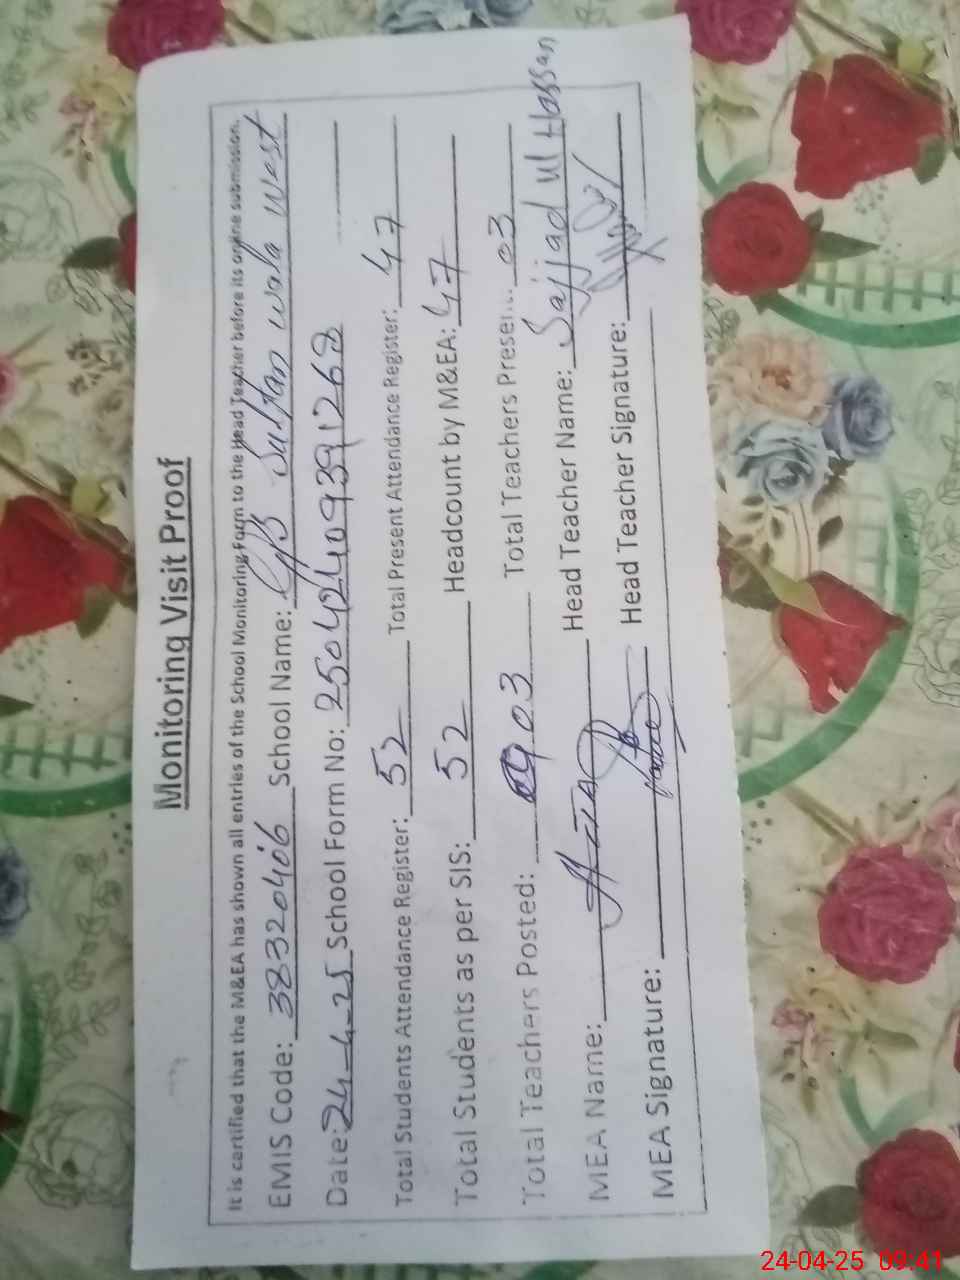 Monitoring Visit Proof
It is certified that the M&EA has shown all entries of the School Monitoring Form to the Head Teacher before its online submission.
EMIS Code: 38320406 School Name: GPS Sultan wala west
Date: 24-4-25 School Form No: 25042409391268
Total Students Attendance Register: 52 Total Present Attendance Register: 47
Total Students as per SIS: 52 Headcount by M&EA: 47
Total Teachers Posted: 03 Total Teachers Present: 03
MEA Name: Head Teacher Name: Sajjad ul Hassan
MEA Signature: Head Teacher Signature:
24-04-25 09:41